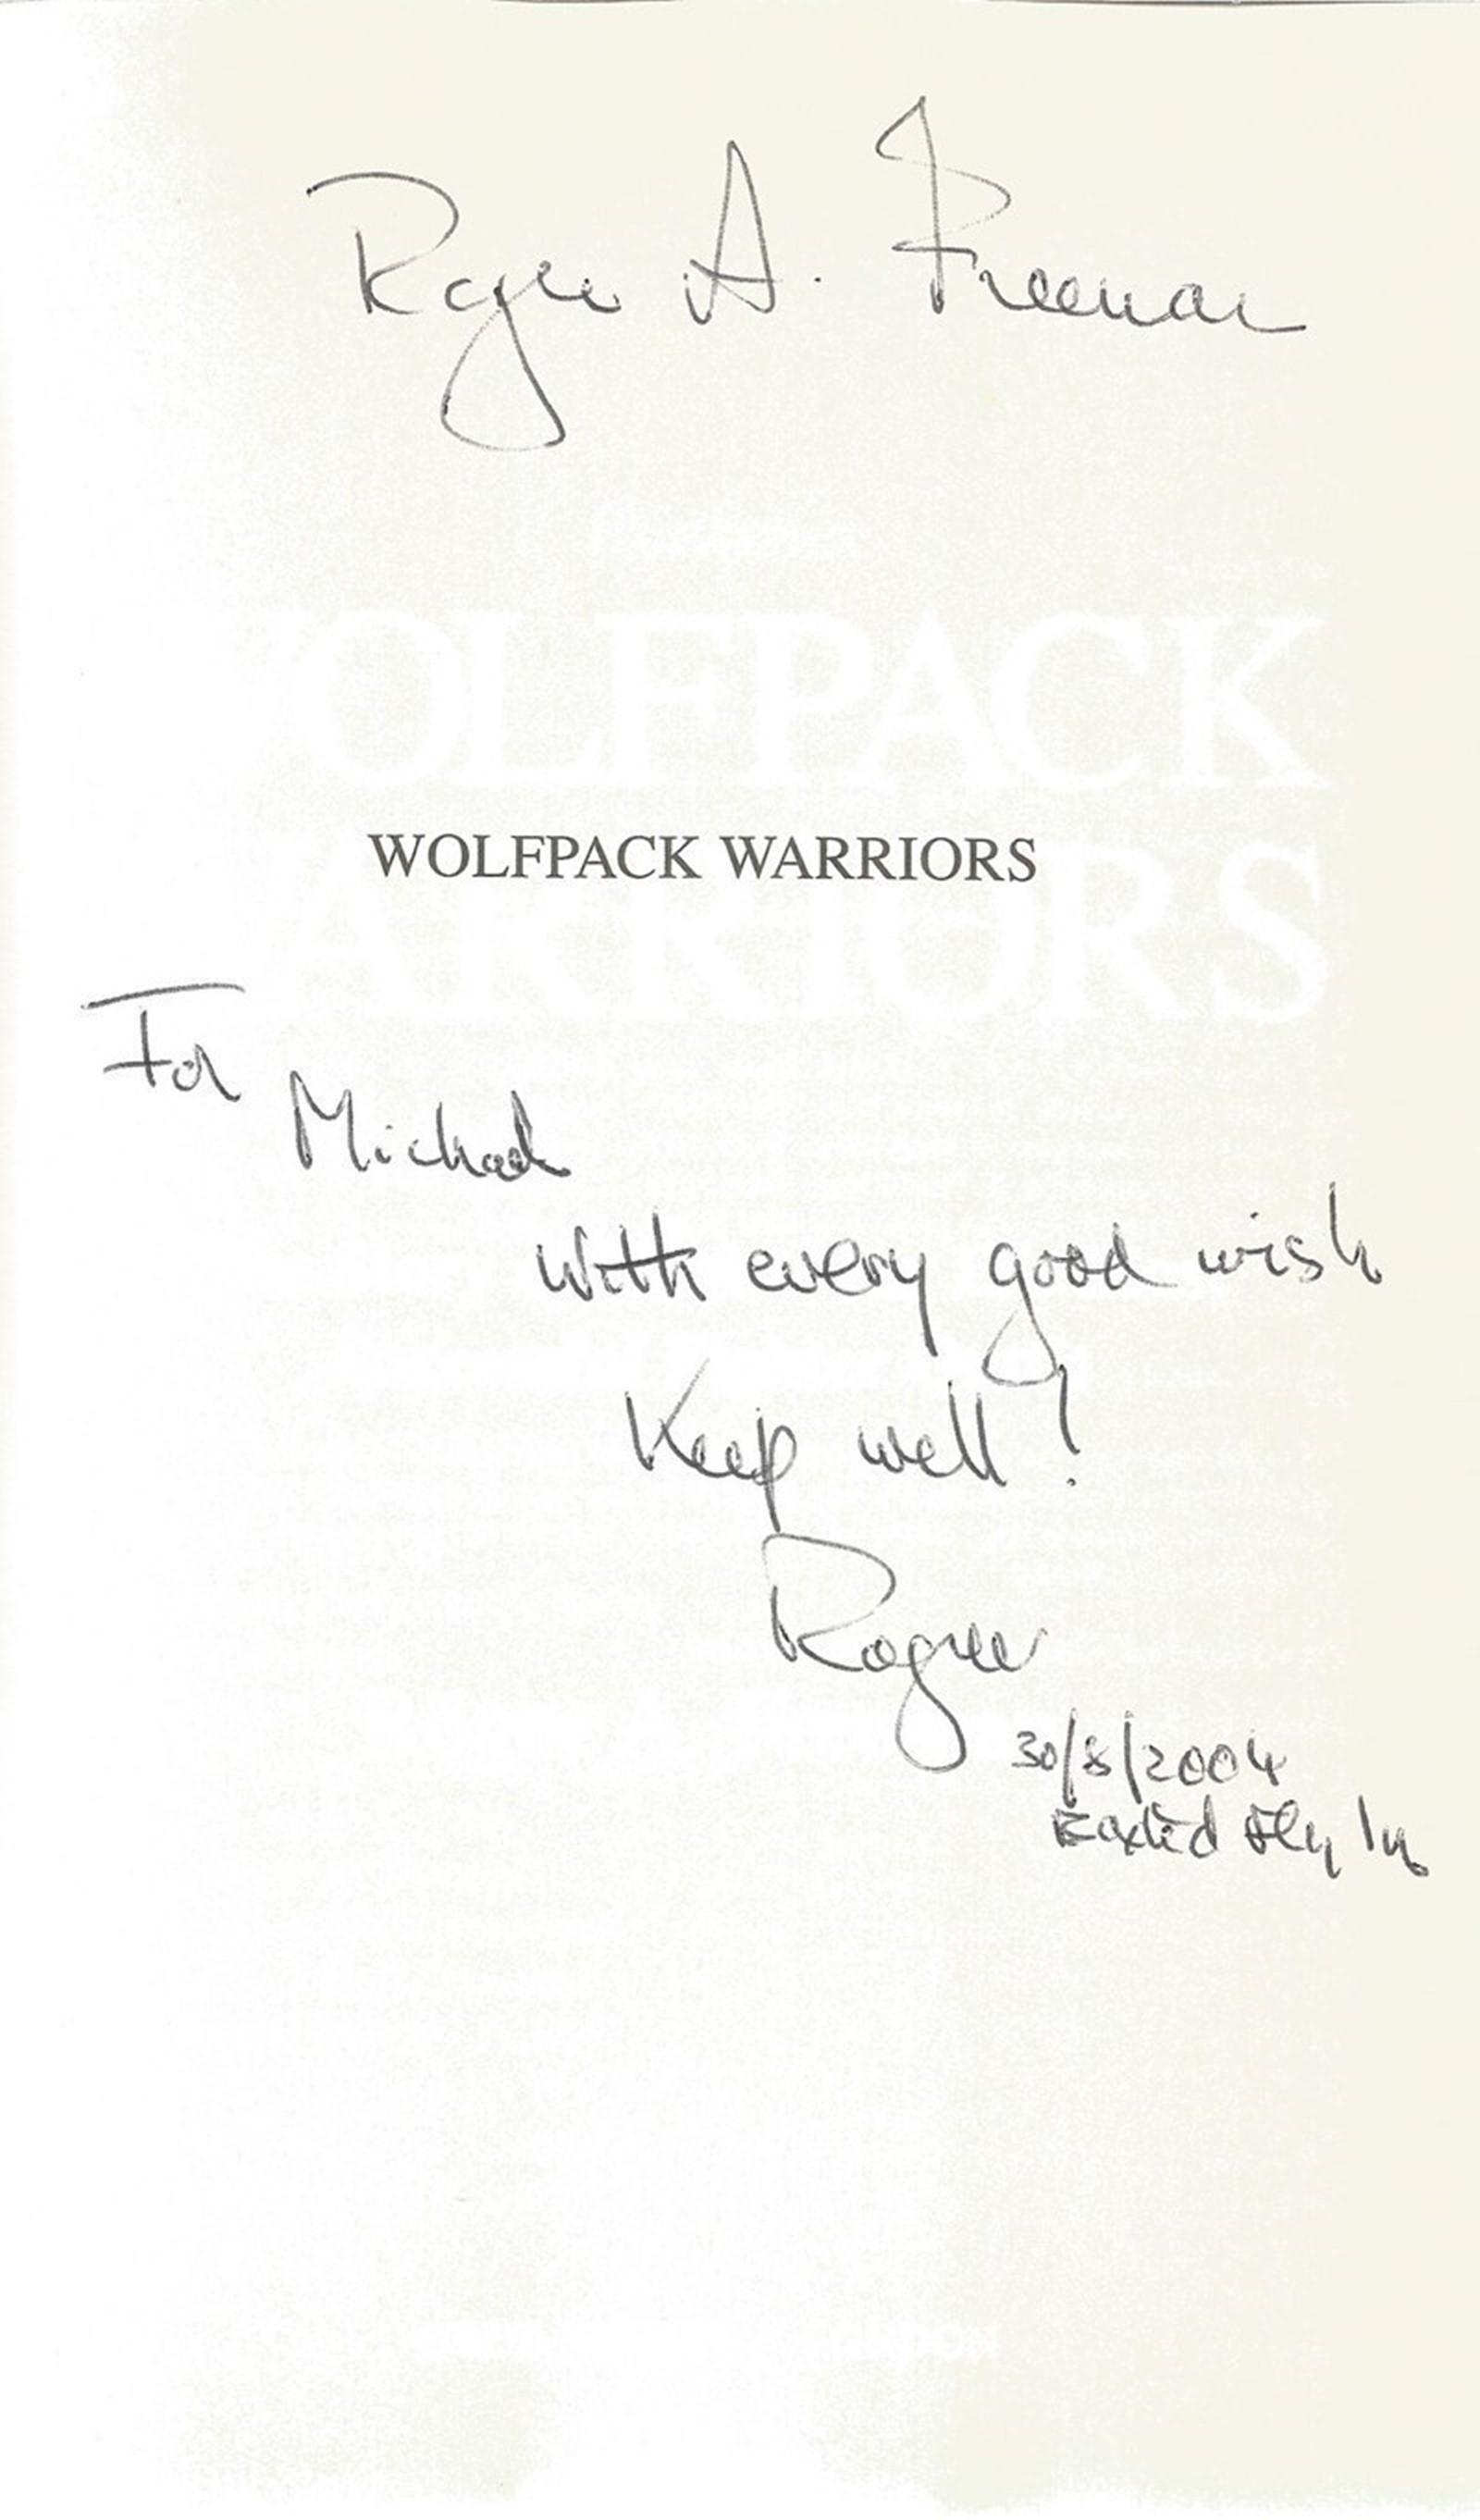 Roger A. Freeman
WOLFPACK
WOLFPACK WARRIORS
WARRIORS
For
Michael
With every good wish
Keep well!
Roger
30/8/2004
Fly In